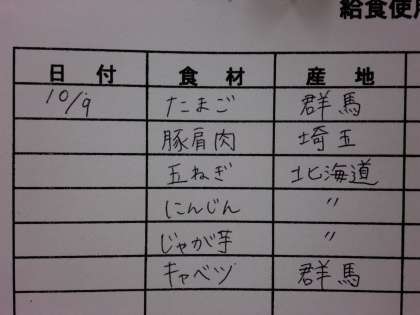 給食使用
日 付 食 材 産 地
10/9 たまご 群馬
豚肩肉 埼玉
玉ねぎ 北海道
にんじん 〃
じゃが芋 〃
キャベツ 群馬